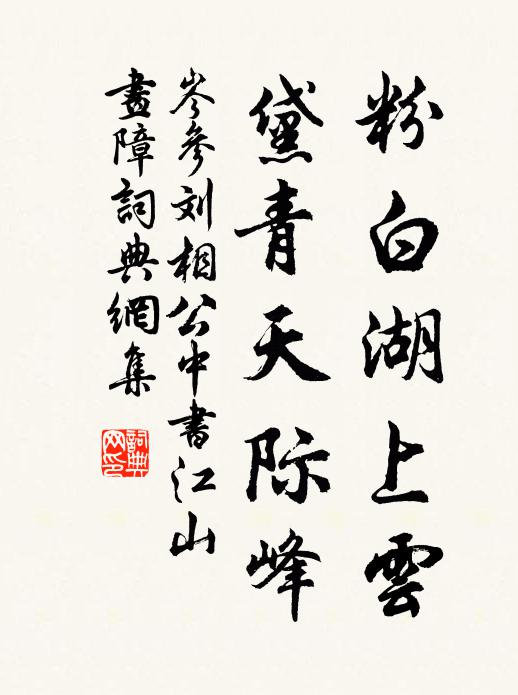 粉白湖上雲
黛青天际峰
岑參刘相公中書江山
畫障詞典網集
詞典网印